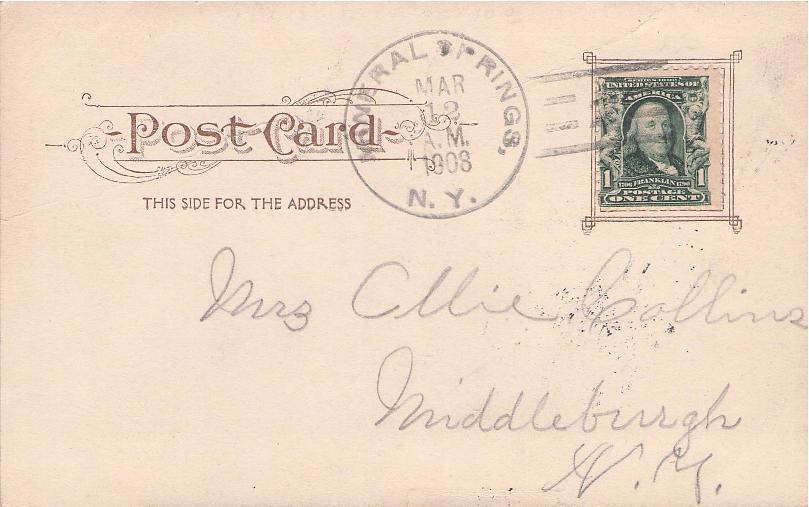 MINERAL SPRINGS,
MAR
12
A.M.
1908
N. Y.
SERIES 1902
UNITED STATES OF
AMERICA
1 1706 FRANKLIN 1790 1
POSTAGE
ONE CENT
Post Card
THIS SIDE FOR THE ADDRESS
Mrs Ollie Collins
Middleburgh
N. Y.